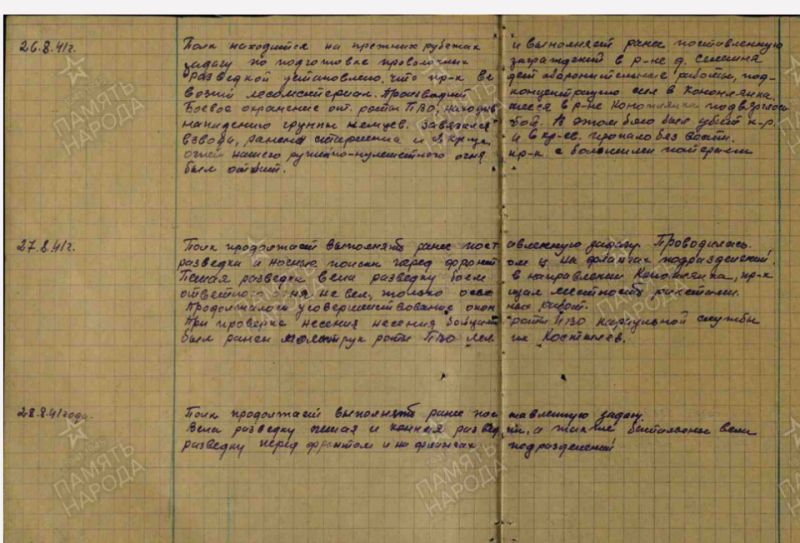 26.8.41г. Полк находится на прежних рубежах и выполняет ранее поставленную
задачу по подготовке проволочных заграждений в р-не д. Семкина
Разведкой установлено, что пр-к ведет оборонительные работы, под-
возит лесоматериал. Производит концентрацию сил в Коноплянка,
Боевое охранение от роты ПВО, находив шееся в р-не Коноплянка подверглось
нападению группы немцев. Завязался бой. В этом бою был убит к-р
взвода, ранены старшина и кр-ца и кр-ев. пропало без вести.
огнем нашего ружейно-пулеметного огня пр-к с большими потерями
был отбит.
27.8.41г. Полк продолжает выполнять ранее поставленную задачу. Проводилась
разведка и ночные поиски перед фронтом и на флангах подразделений.
Пешая разведка вела разведку боем в направлении Коноплянка, пр-к
ответного огня не вел, только освещал местность ракетами.
Продолжали усовершенствование окопных работ.
При проверке несения несения бойцами роты ПВО караульной службы
был ранен политрук роты ПВО Костылев.
28.8.41 года. Полк продолжает выполнять ранее поставленную задачу.
Вела разведку пешая и конная разведки, а также батальоны вели
разведку перед фронтом и на флангах подразделений
ПАМЯТЬ
НАРОДА